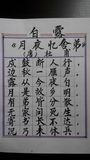 白露
《月夜忆舍弟》
(唐)杜甫
戍鼓断人行
边秋一雁声
露从今夜白
月是故乡明
有弟皆分散
无家问死生
寄书长不达
况乃未休兵